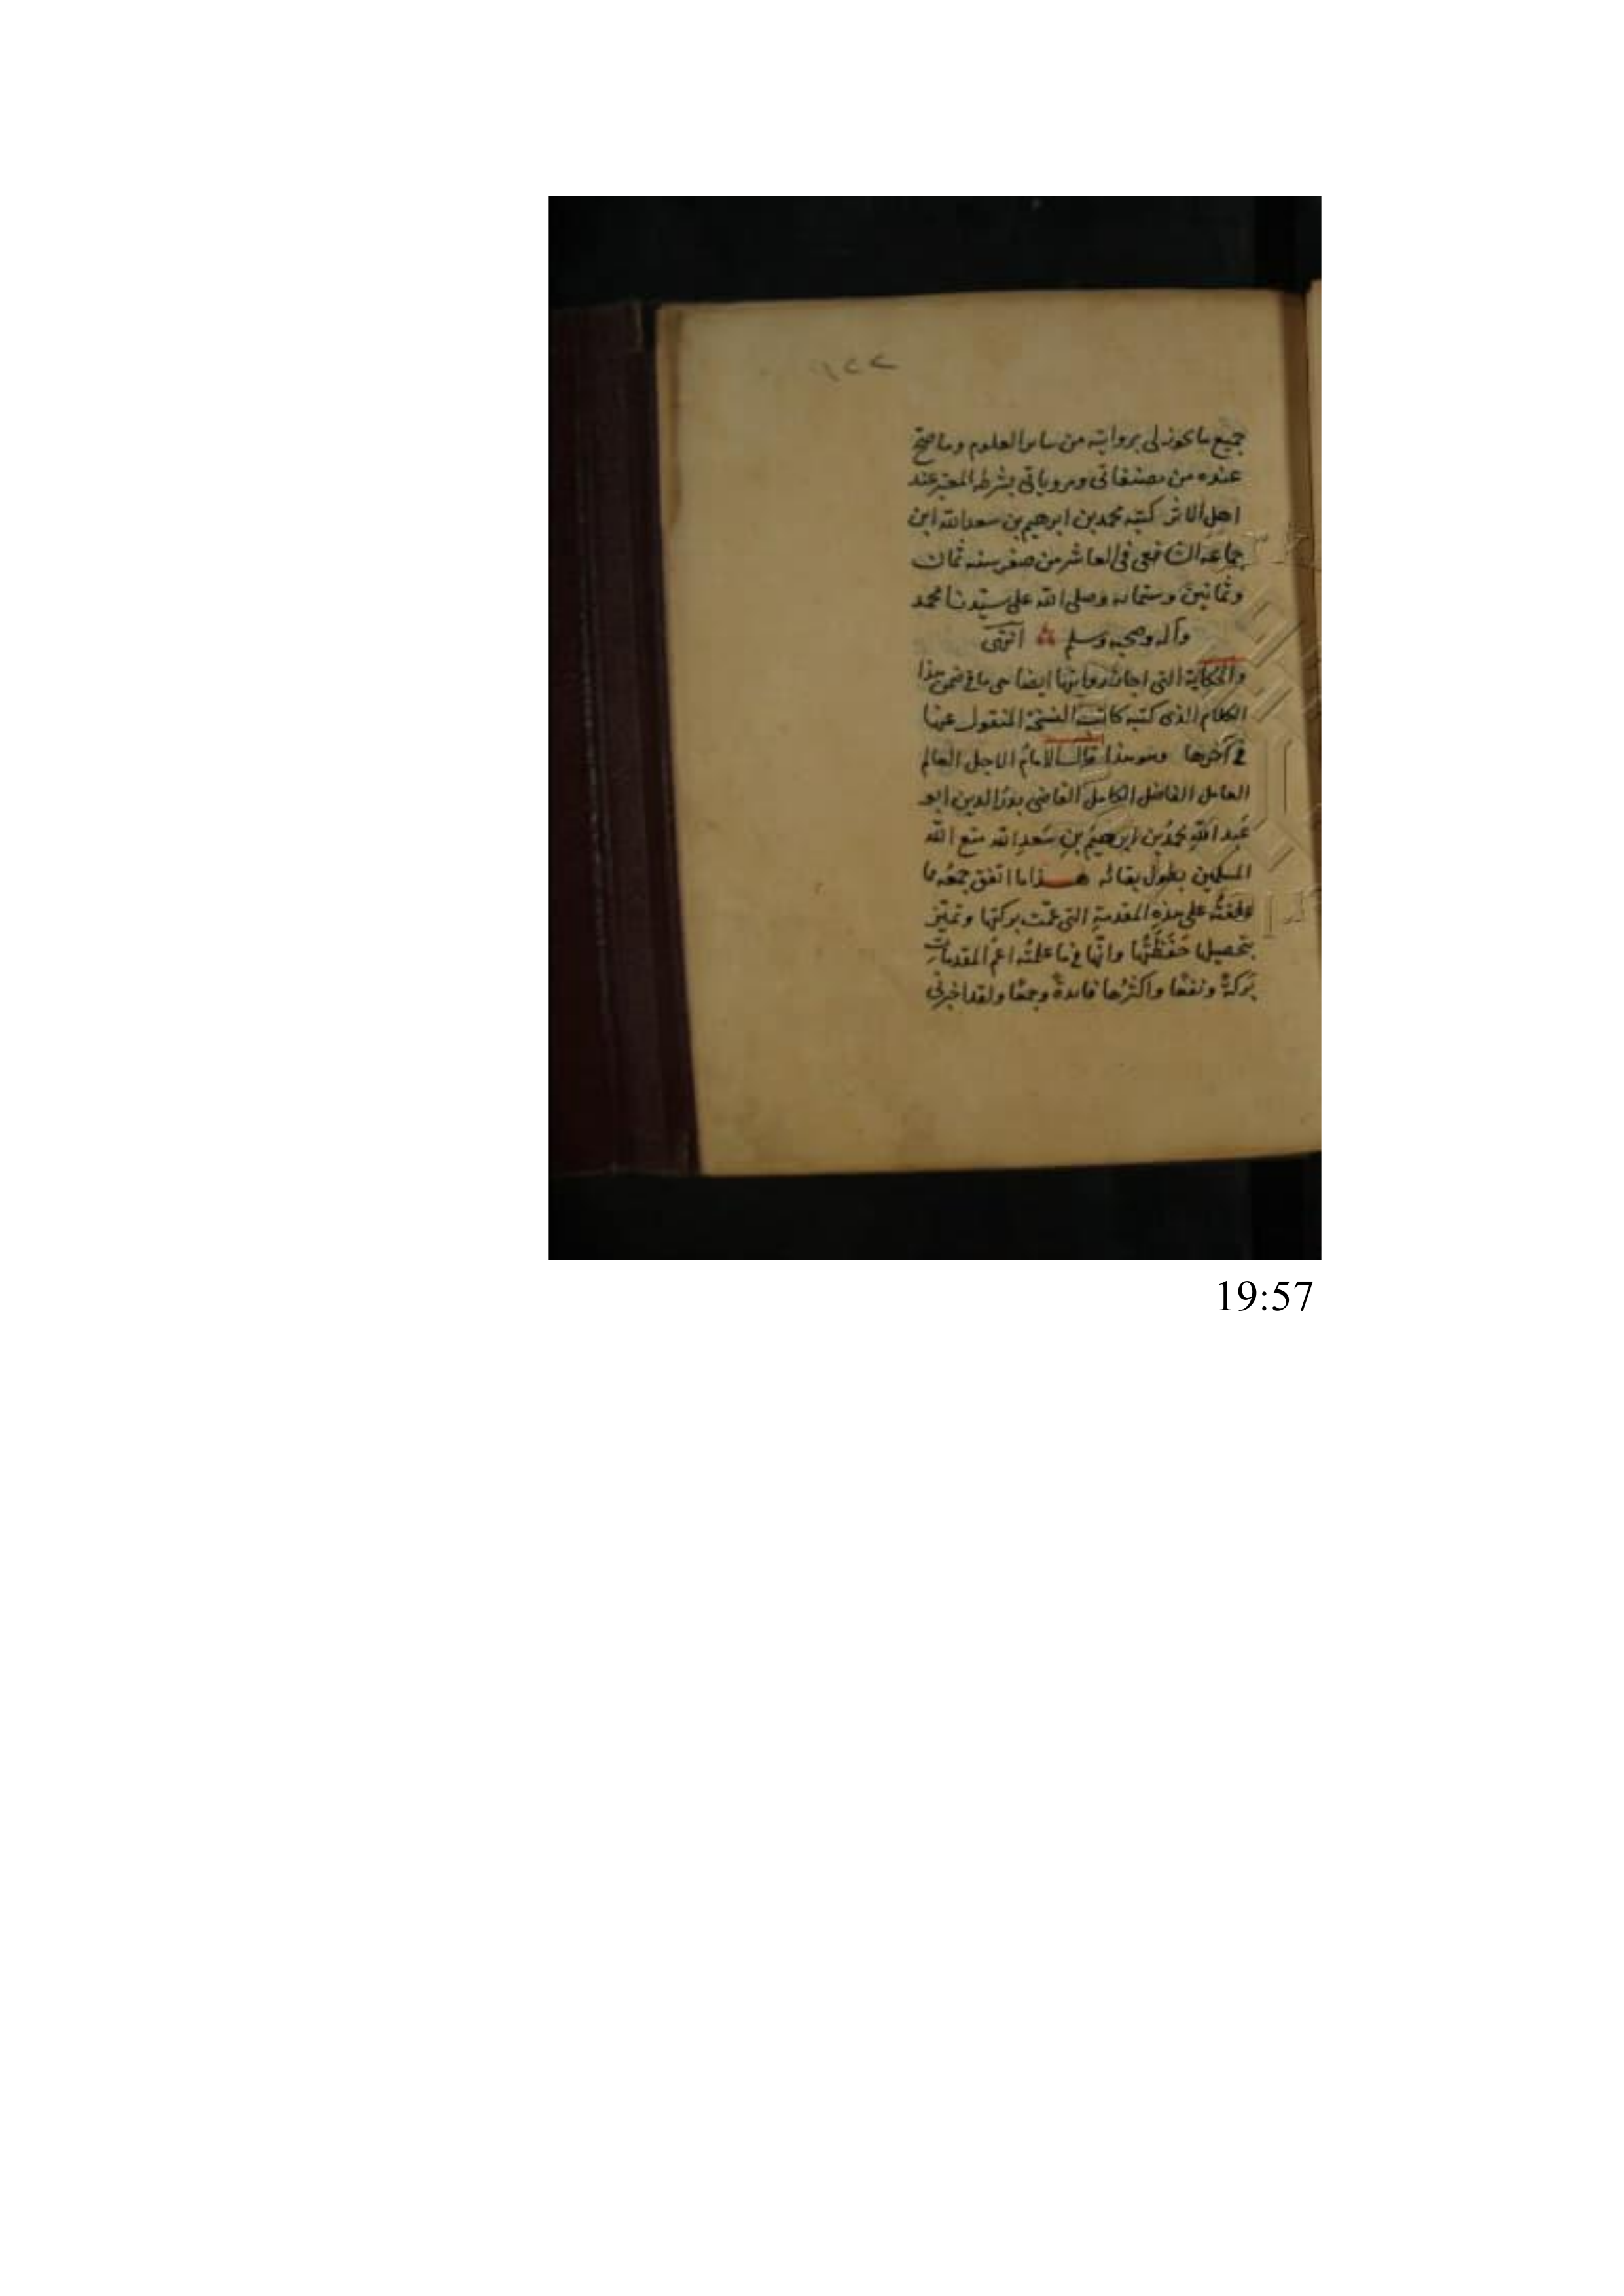 جميع ما يجوز لى روايته من ساير العلوم وما صح
عنده من مصنفاتى ومروياتى بشرطه المعتبر عند
اهل الاثر كتبه محمد بن ابرهيم بن سعد الله ابن
جماعه الشافعى فى العاشر من صفر سنه ثمان
وثمانين وستمائه وصلى الله على سيدنا محمد
وآله وصحبه وسلم انتهى
والحكاية التى اجاز روايتها ايضا هى ما فى ضمن هذا
الكلام الذى كتبه كاتب النسخة المنقول عنها
فى آخرها وهو هذا قال الامام الاجل العالم
العامل الفاضل الكامل القاضى بدر الدين ابو
عَبد اللهِ محمدُ بن ابرهيمَ بنِ سَعدِ الله متع الله
المسلمين بطول بقائه هذا ما اتفق جمعُه مما
علقتُه على هذهِ المقدمةِ التى عمّت بركتها وتميّز
بتحصيلها حَفَظَتُها وانّها فى ما علمتُه اعمّ المقدمات
بَركةً ونفعًا واكثرُها فائدةً وجمعًا ولقد اخبرنى
19:57